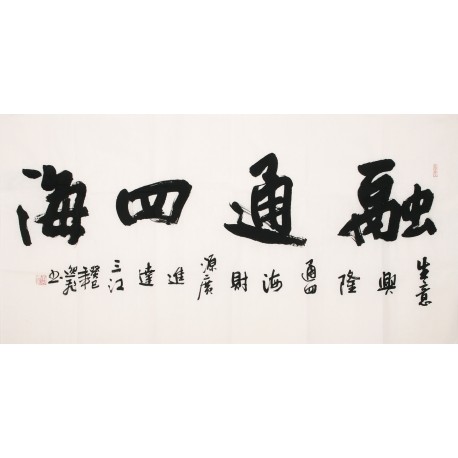 融通四海
生意興隆通四海財源廣進達三江
書